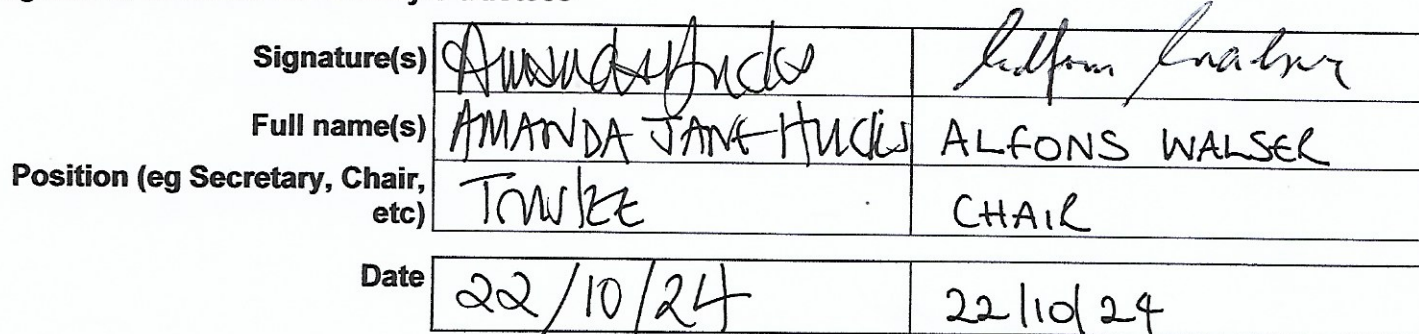 Signature(s) Amanda Hucks Alfons Walser
Full name(s) AMANDA JANE HUCKS ALFONS WALSER
Position (eg Secretary, Chair, etc) Trustee CHAIR
Date 22/10/24 22/10/24